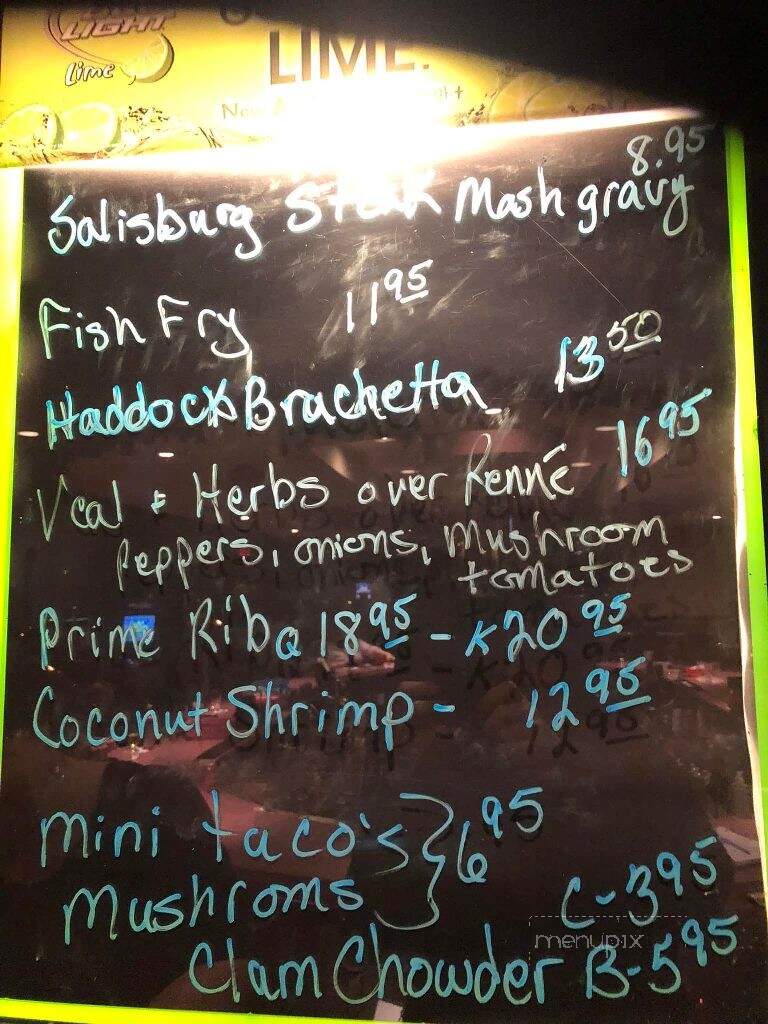 LIGHT
Lime
LIME.
8.95
Salisburg Steak Mash gravy
Fish Fry 11 95
Haddock Brachetta 13 50
Veal & Herbs over Penné 16 95
Peppers, onions, mushroom
tomatoes
Prime Rib Q 18 95 - K 20 95
Coconut Shrimp - 12 95
Mini taco's } 6 95
Mushroms
C-3 95
Clam Chowder B-5 95
menupix